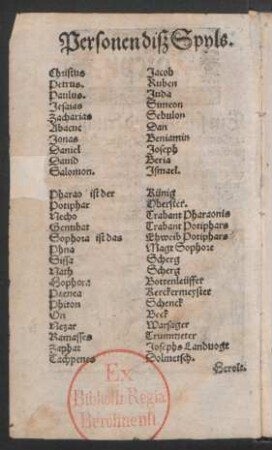 Personen diß Spyls.
Christus Jacob
Petrus. Ruben
Paulus. Juda
Jesaias Simeon
Zacharias Sebulon
Abacuc Dan
Jonas Beniamin
Daniel Joseph
Dauid Beria
Salomon. Ismael.
Pharao ist der Künig
Potiphar Oberster.
Necho Trabant Pharaonis
Genubat Trabant Potiphars
Sophora ist das Eheweib Potiphars
Phua Magt Sophore
Sissa Scherg
Nath Scherg
Sophora Bottenleüffer
Paenea Kerckermeyster
Phiton Schenck
On Beck
Nezar Warsager
Ramasses Trummeter
Zaphat Josephs Landuogt
Tachpenes Dolmetsch.
Herolt.
Ex
Biblioth. Regia
Berolinensi.